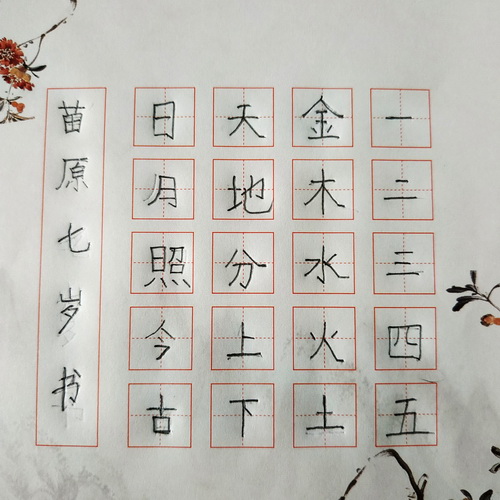 一二三四五
金木水火土
天地分上下
日月照今古
苗原七岁书